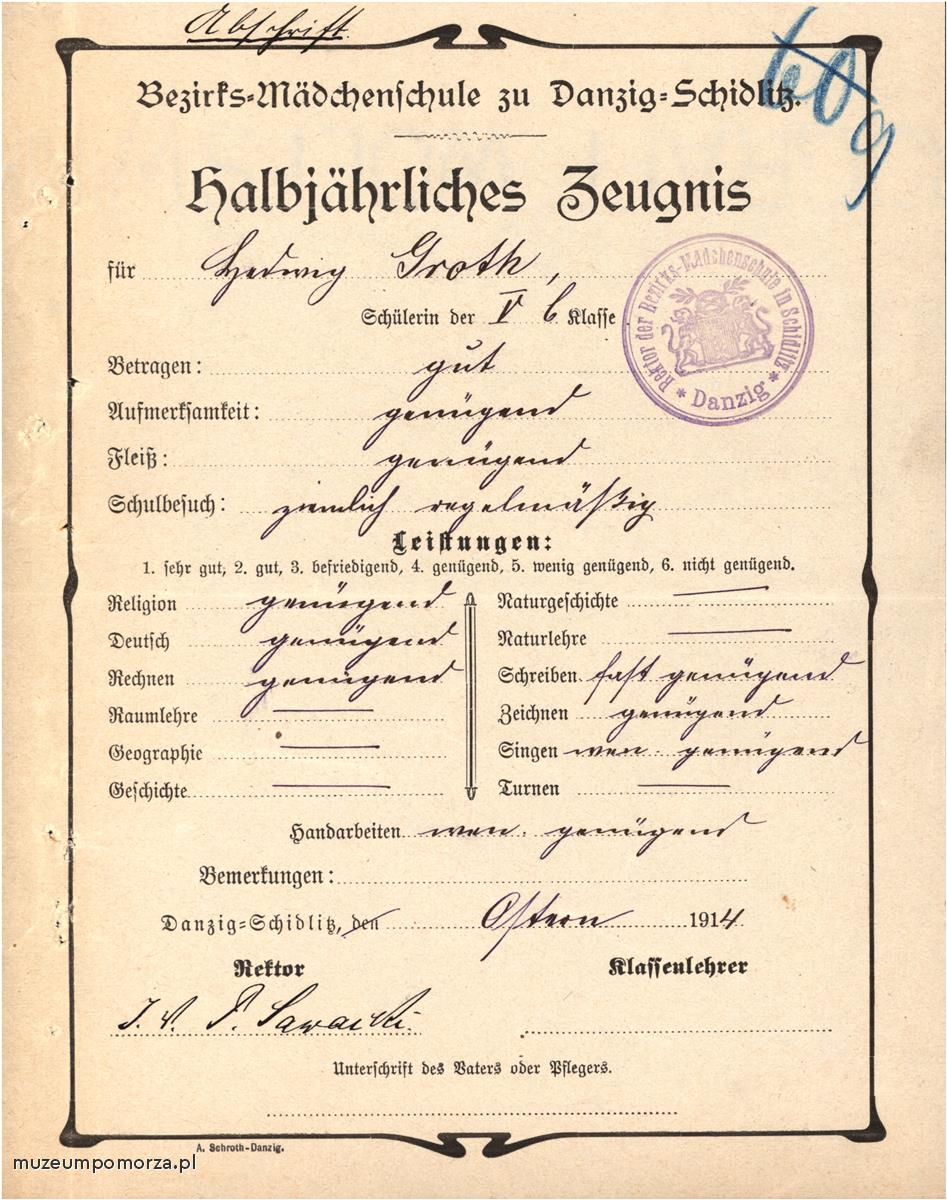 Abschrift.
609
Bezirks=Mädchenschule zu Danzig=Schidlitz.
Halbjährliches Zeugnis
für Hedwig Groth,
Schülerin der V b Klasse
Rektor der Bezirks-Mädchenschule in Schidlitz * Danzig *
Betragen: gut
Aufmerksamkeit: genügend
Fleiß: genügend
Schulbesuch: ziemlich regelmäßig
Leistungen:
1. sehr gut, 2. gut, 3. befriedigend, 4. genügend, 5. wenig genügend, 6. nicht genügend.
Religion genügend
Deutsch genügend
Rechnen genügend
Raumlehre
Geographie
Geschichte
Naturgeschichte
Naturlehre
Schreiben fast genügend
Zeichnen genügend
Singen wen. genügend
Turnen
Handarbeiten wen. genügend
Bemerkungen:
Danzig=Schidlitz, den Ostern 1914
Rektor
Klassenlehrer
I. V. P.
Unterschrift des Vaters oder Pflegers.
A. Schroth-Danzig.
muzeumpomorza.pl